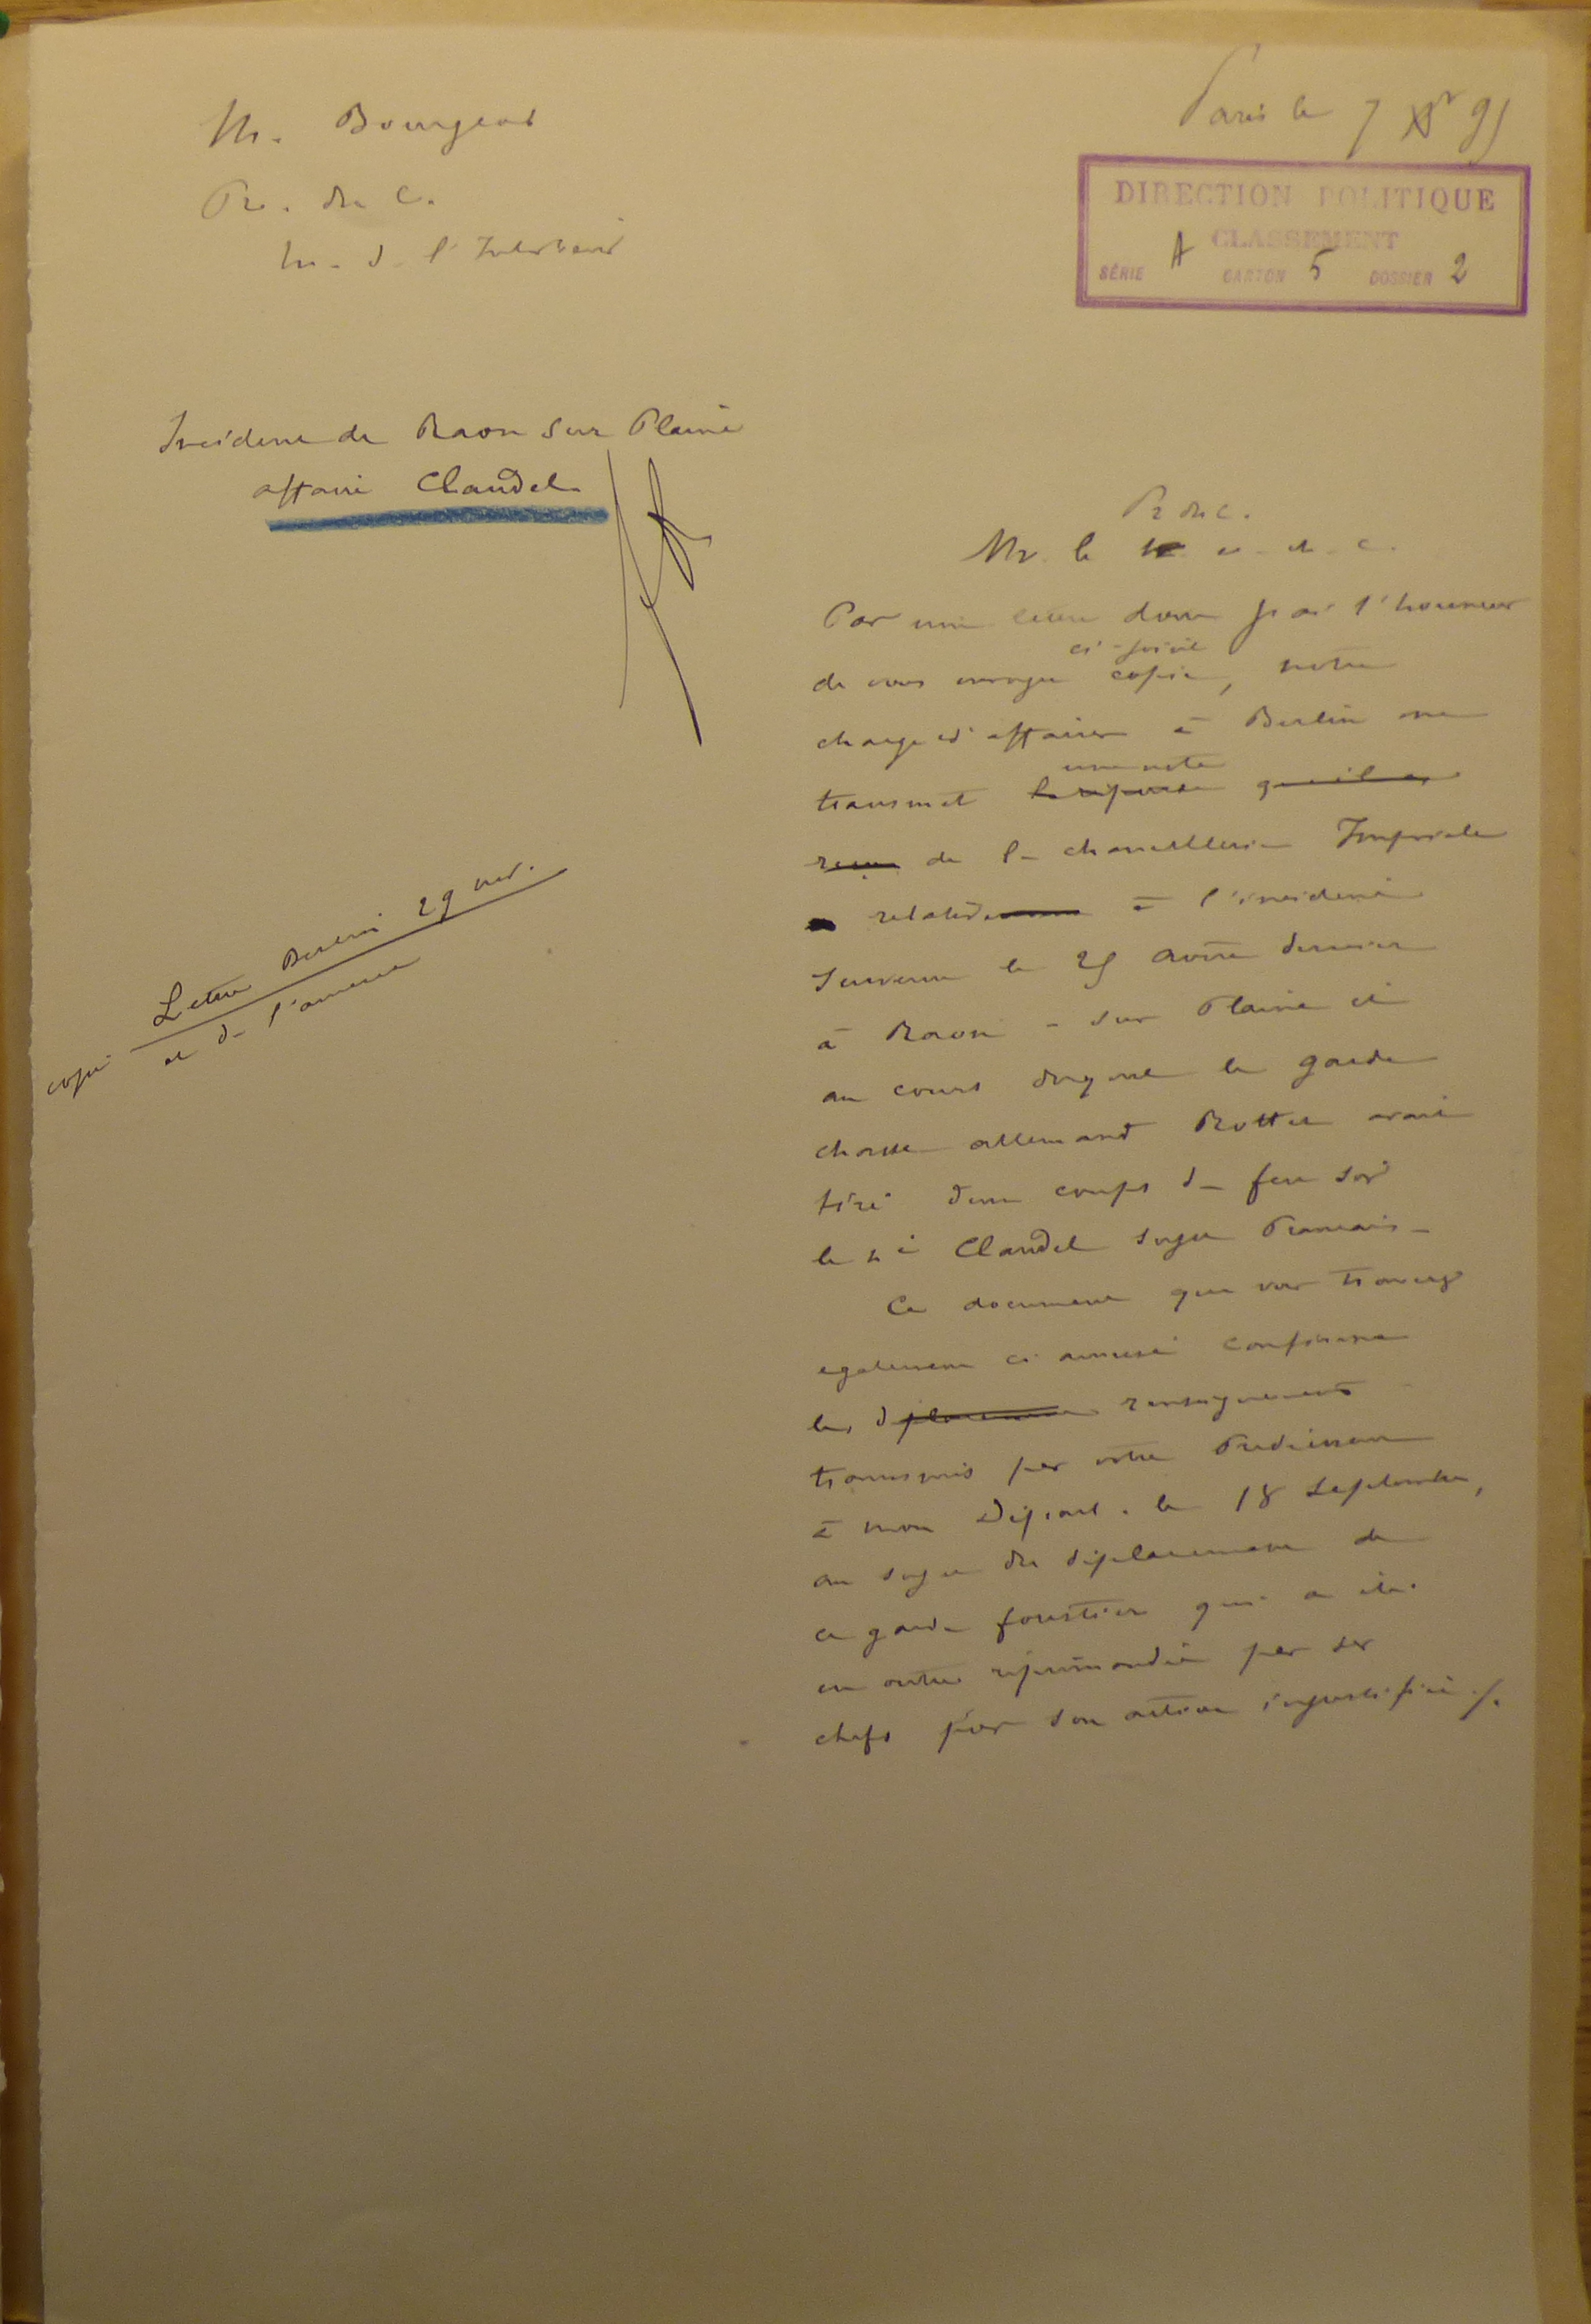 M. Bourgeois
Pr. du C.
M. d. l'Intérieur
Paris le 7 Xbr 95
DIRECTION POLITIQUE
CLASSEMENT
SÉRIE A CARTON 5 DOSSIER 2
Incident de Raon sur Plaine
affaire Claudel
copie Lettre Berlin 29 nov.
et de l'annexe
Pr du C.
Mr le
Par une lettre dont j'ai l'honneur
de vous envoyer ci-joint copie, notre
chargé d'affaires à Berlin me
transmet la réponse qu'il a une note
reçue de la chancellerie Impériale
relative à l'incident
survenu le 25 avril dernier
à Raon-sur Plaine et
au cours duquel le garde
chasse allemand Rottet avait
tiré deux coups de feu sur
le sr Claudel sujet Français-
Ce document que vous trouverez
également ci annexé confirme
les déplacement renseignements
transmis par votre Prédécesseur
à mon Départ. le 18 septembre,
au sujet du déplacement de
ce garde forestier qui a été
en outre réprimandé par ses
chefs pour son action injustifiée ./.